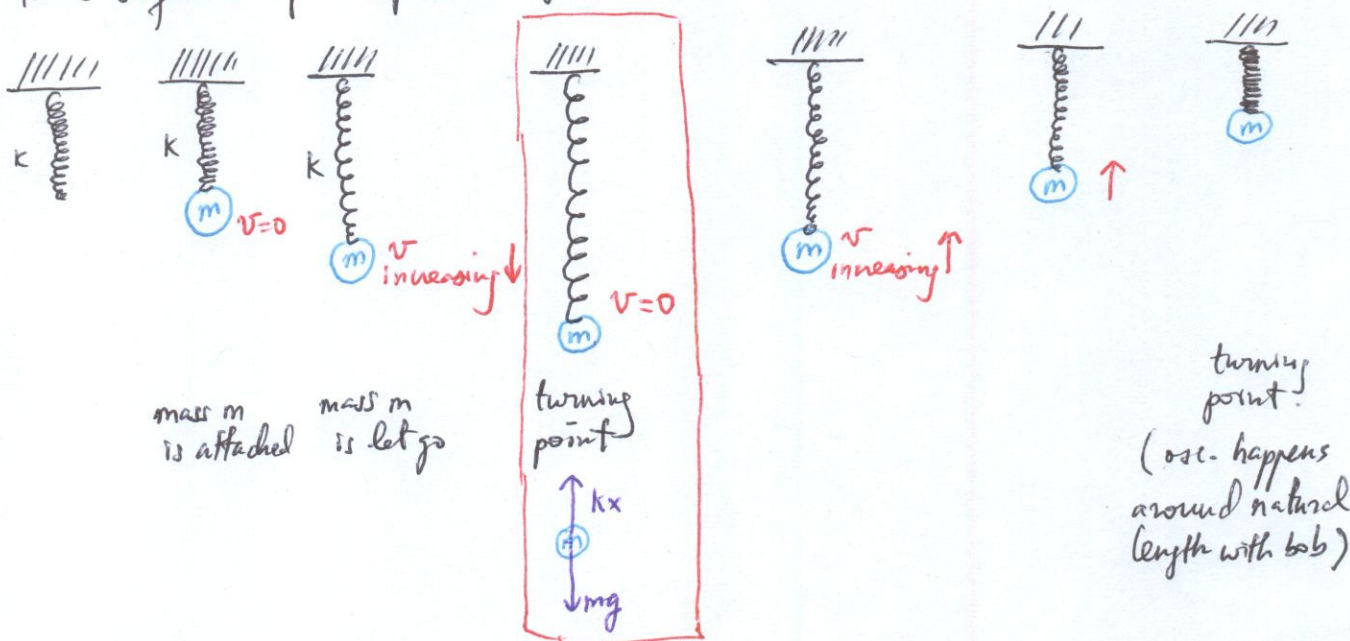 K
K
K
m
m
m
m
m
m
v=0
v
increasing
v=0
v
increasing
mass m
is attached
mass m
is let go
turning
point
turning
point.
(osc. happens
around natural
length with bob)
kx
m
mg